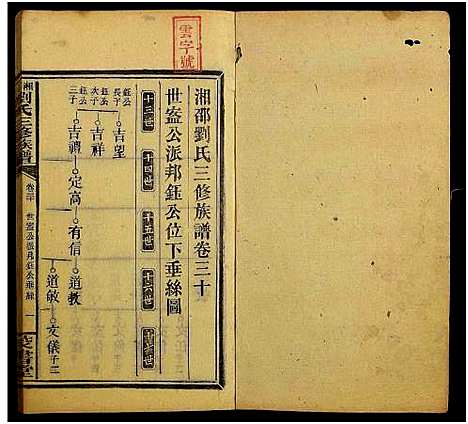 雲字號
湘邵劉氏三修族譜卷三十
世盛公派邦鈺公位下垂絲圖
十三世 十四世 十五世 十六世 十七世
鈺公長子 吉望
鈺公次子 吉祥
鈺公三子 吉禮 定高 有信 道教
道敏 文儀 子二
湘邵劉氏三修族譜 卷三十 世盛公派邦鈺公垂絲 一